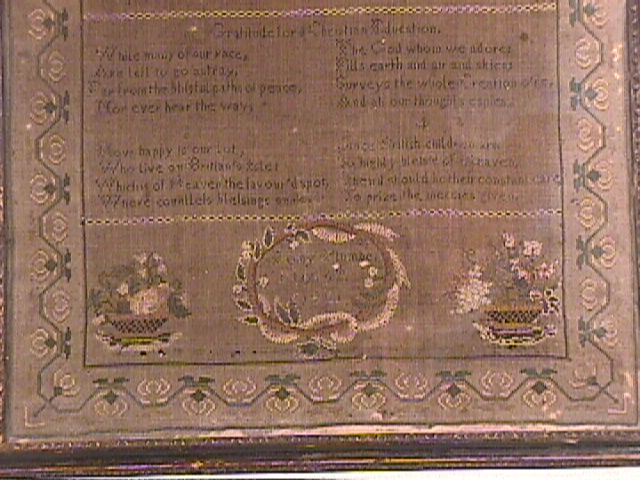 Gratitude for a Christian Education.
While many of our race,
Are left to go astray,
Far from the blissful paths of peace,
Nor ever hear the way,
How happy is our Lot,
Who live on Brittan's Isle
Which is of Heaven the favour'd spot,
Where countless blessings smile
The God whom we adore
Fills earth and air and skies
Surveys the whole Creation o'er,
And all our thoughts espies
Since British children are
So highly blessed of Heaven,
should be their constant care
To prize the mercies given.